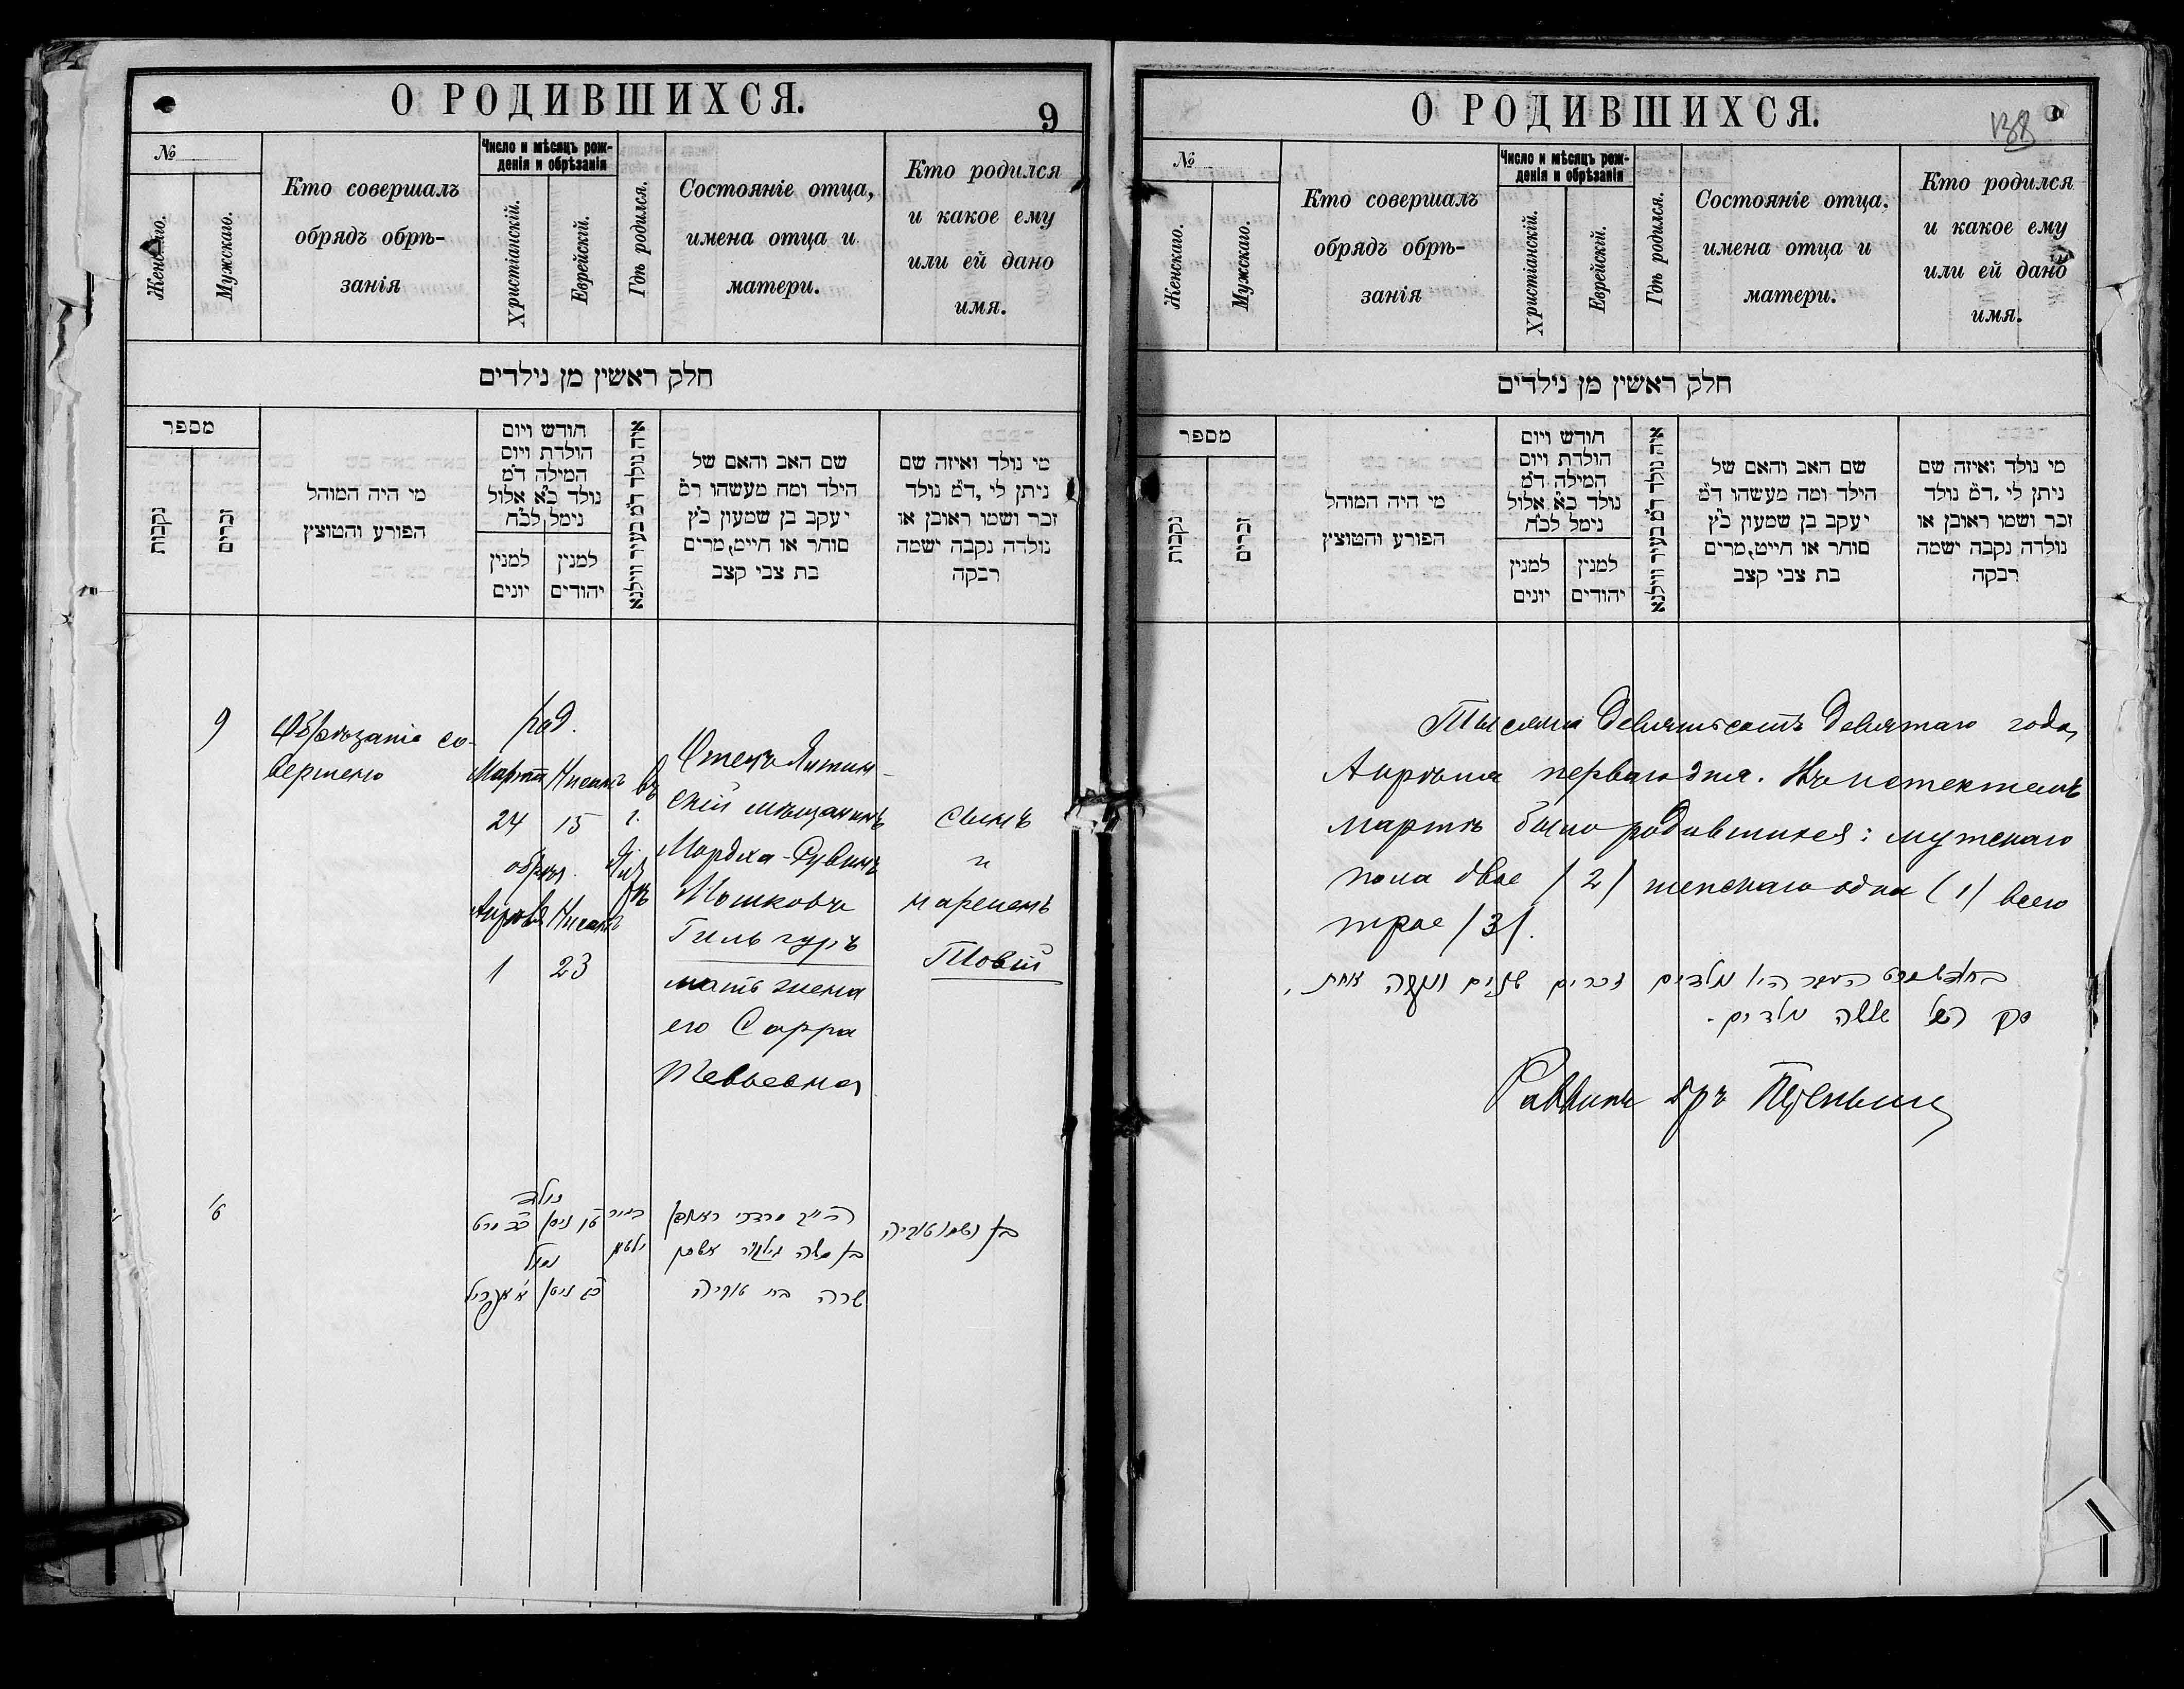 О РОДИВШИХСЯ.
9
№
Женскаго.
Мужскаго.
Кто совершалъ
обрядъ обрѣ-
занія
Число и мѣсяцъ рож-
денія и обрѣзанія
Христіанскій.
Еврейскій.
Гдѣ родился.
Состояніе отца,
имена отца и
матери.
Кто родился
и какое ему
или ей дано
имя.
חלק ראשין מן נילדים
מספר
נקבות
זכרים
מי היה המוהל
הפורע והטוצץ
חודש ויום
הולדת ויום
המילה ד״מ
נולד כ״א אלול
נימל לכ״ח
למנין
יונים
למנין
יהודים
איה נולד ד״מ בעיר ווילנא
שם האב והאם של
הילד ומה מעשהו ד״מ
יעקב בן שמעון כ״ץ
סוחר או חייט, מרים
בת צבי קצב
מי נולד ואיזה שם
ניתן לי, ד״מ נולד
זכר ושמו ראובן או
נולדה נקבה ישמה
רבקה
9
Обрѣзаніе со-
вершено
род.
Марта Нисанъ
24 15
обрѣз.
Апрѣля Нисанъ
1 23
въ
г.
Отецъ
скій мѣщанинъ
Мордха-Рувинъ
Мошковъ
Гильгуръ
мать жена
его Сарра
Тевьевна
сынъ
и
нареченъ
Товій
ט׳
נולד
ט״ו ניסן
כ״ד מרט
נימול
כ״ג ניסן
א׳ אפריל
בעיר
מרדכי ראובן
בן משה
שרה בת טוביה
בן ושמו טוביה
О РОДИВШИХСЯ.
138
№
Женскаго.
Мужскаго.
Кто совершалъ
обрядъ обрѣ-
занія
Число и мѣсяцъ рож-
денія и обрѣзанія
Христіанскій.
Еврейскій.
Гдѣ родился.
Состояніе отца,
имена отца и
матери.
Кто родился
и какое ему
или ей дано
имя.
חלק ראשין מן נילדים
מספר
נקבות
זכרים
מי היה המוהל
הפורע והטוצץ
חודש ויום
הולדת ויום
המילה ד״מ
נולד כ״א אלול
נימל לכ״ח
למנין
יונים
למנין
יהודים
איה נולד ד״מ בעיר ווילנא
שם האב והאם של
הילד ומה מעשהו ד״מ
יעקב בן שמעון כ״ץ
סוחר או חייט, מרים
בת צבי קצב
מי נולד ואיזה שם
ניתן לי, ד״מ נולד
זכר ושמו ראובן או
נולדה נקבה ישמה
רבקה
Тысяча девятьсотъ девятаго года,
Апрѣля перваго дня. Въ истекшемъ
мартѣ было родившихся: мужскаго
пола двое /2/ женскаго одна (1) всего
трое /3/.
היו נולדים זכרים שנים ונקבה אחת.
סך הכל שלשה נולדים.
Раввинъ